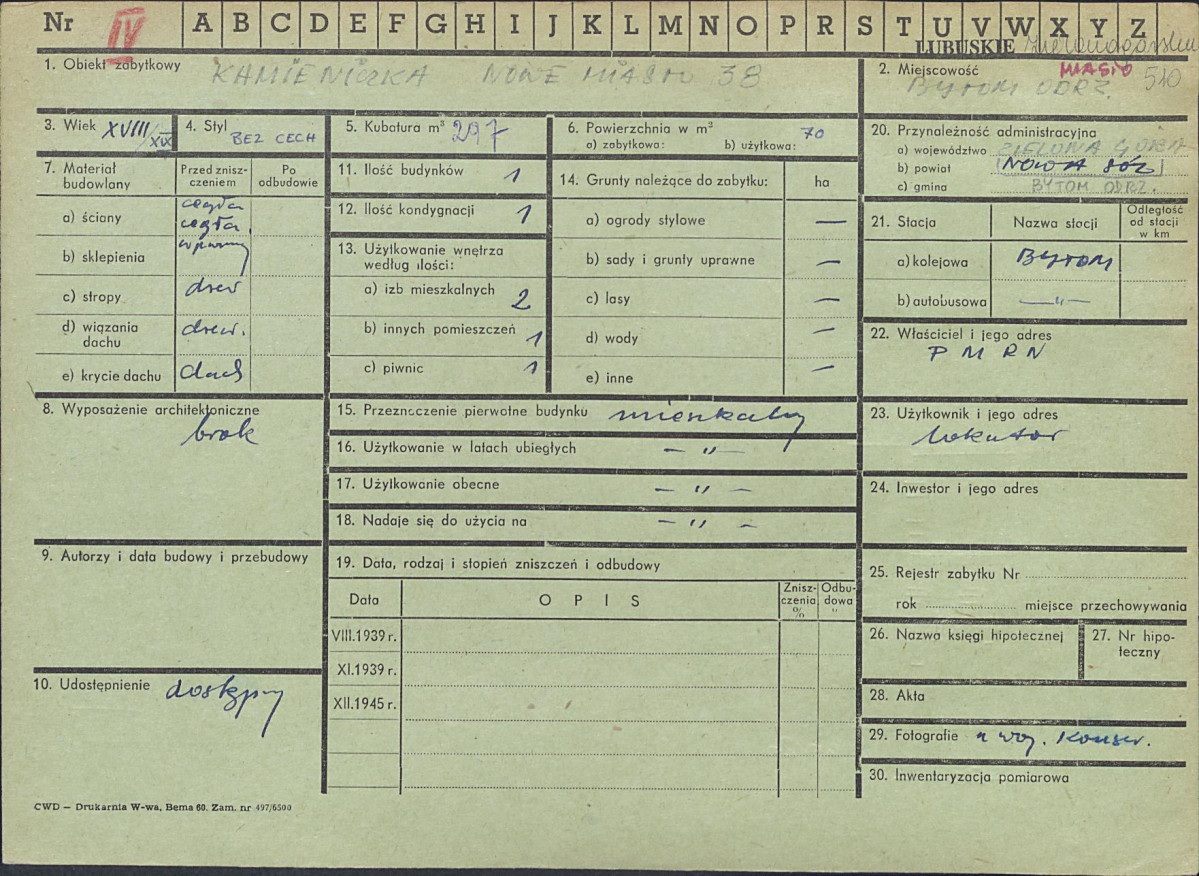 Nr IV A B C D E F G H I J K L M N O P R S T U V W X Y Z
LUBUSKIE
1. Obiekt zabytkowy KAMIENICZKA NOWE MIASTO 38
2. Miejscowość MIASTO 510
BYTOM ODRZ.
3. Wiek XVIII/XIX
4. Styl BEZ CECH
5. Kubatura m³ 297
6. Powierzchnia w m² 70
a) zabytkowa: b) użytkowa:
20. Przynależność administracyjna
a) województwo ZIELONA GÓRA
b) powiat NOWA SÓL
c) gmina BYTOM ODRZ.
7. Materiał budowlany
Przed zniszczeniem
Po odbudowie
a) ściany cegła
cegła
b) sklepienia
c) stropy drew
d) wiązania dachu drew.
e) krycie dachu dach
11. Ilość budynków 1
12. Ilość kondygnacji 1
13. Użytkowanie wnętrza
według ilości:
a) izb mieszkalnych 2
b) innych pomieszczeń 1
c) piwnic 1
14. Grunty należące do zabytku: ha
a) ogrody stylowe —
b) sady i grunty uprawne —
c) lasy —
d) wody —
e) inne —
21. Stacja Nazwa stacji Odległość od stacji w km
a) kolejowa BYTOM
b) autobusowa —"—
22. Właściciel i jego adres
P M R N
8. Wyposażenie architektoniczne
brak
15. Przeznaczenie pierwotne budynku mieszkalny
16. Użytkowanie w latach ubiegłych — " —
17. Użytkowanie obecne — " —
18. Nadaje się do użycia na — " —
23. Użytkownik i jego adres
lokator
24. Inwestor i jego adres
9. Autorzy i data budowy i przebudowy
19. Data, rodzaj i stopień zniszczeń i odbudowy
Data O P I S Zniszczenia % Odbudowa "
VIII.1939 r.
XI.1939 r.
XII.1945 r.
25. Rejestr zabytku Nr
rok miejsce przechowywania
26. Nazwa księgi hipotecznej
27. Nr hipoteczny
10. Udostępnienie dostępny
28. Akta
29. Fotografie u woj. Konser.
30. Inwentaryzacja pomiarowa
CWD — Drukarnia W-wa, Bema 60. Zam. nr 497/6500